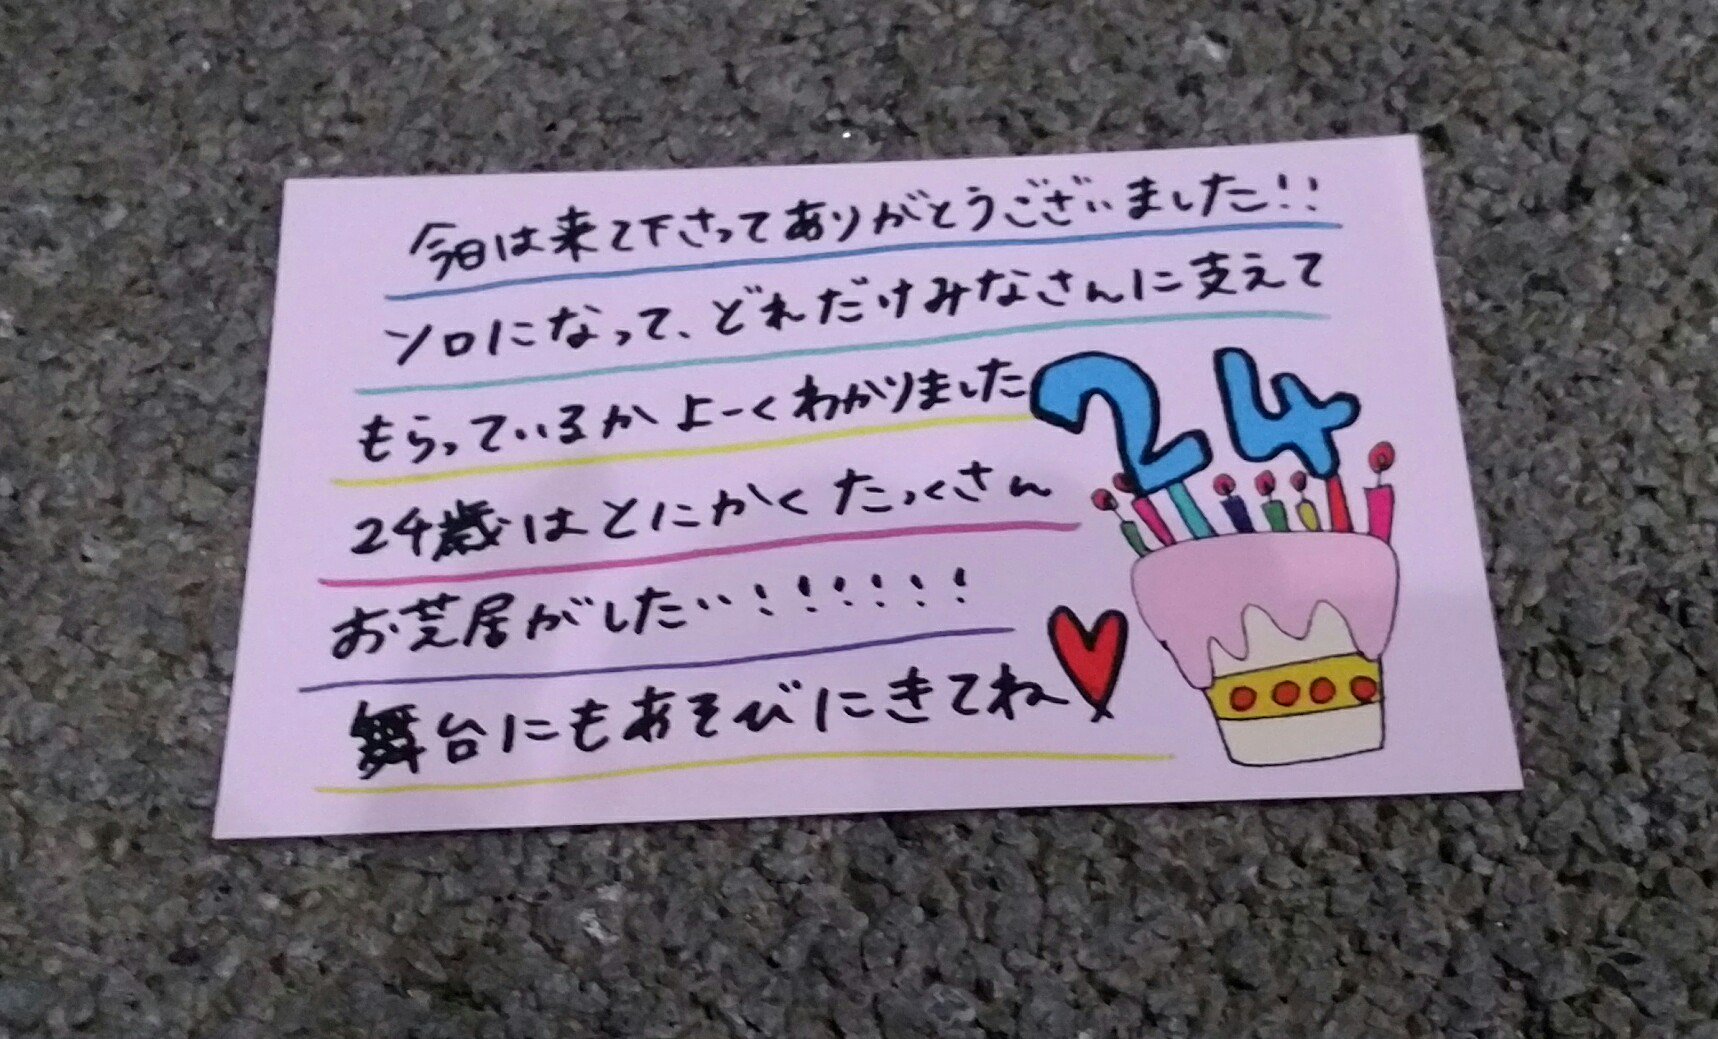 今日は来て下さってありがとうございました!!
ソロになって、どれだけみなさんに支えて
もらっているかよーくわかりました
24歳はとにかくたっくさん
お芝居がしたい!!!!!!
舞台にもあそびにきてね
24